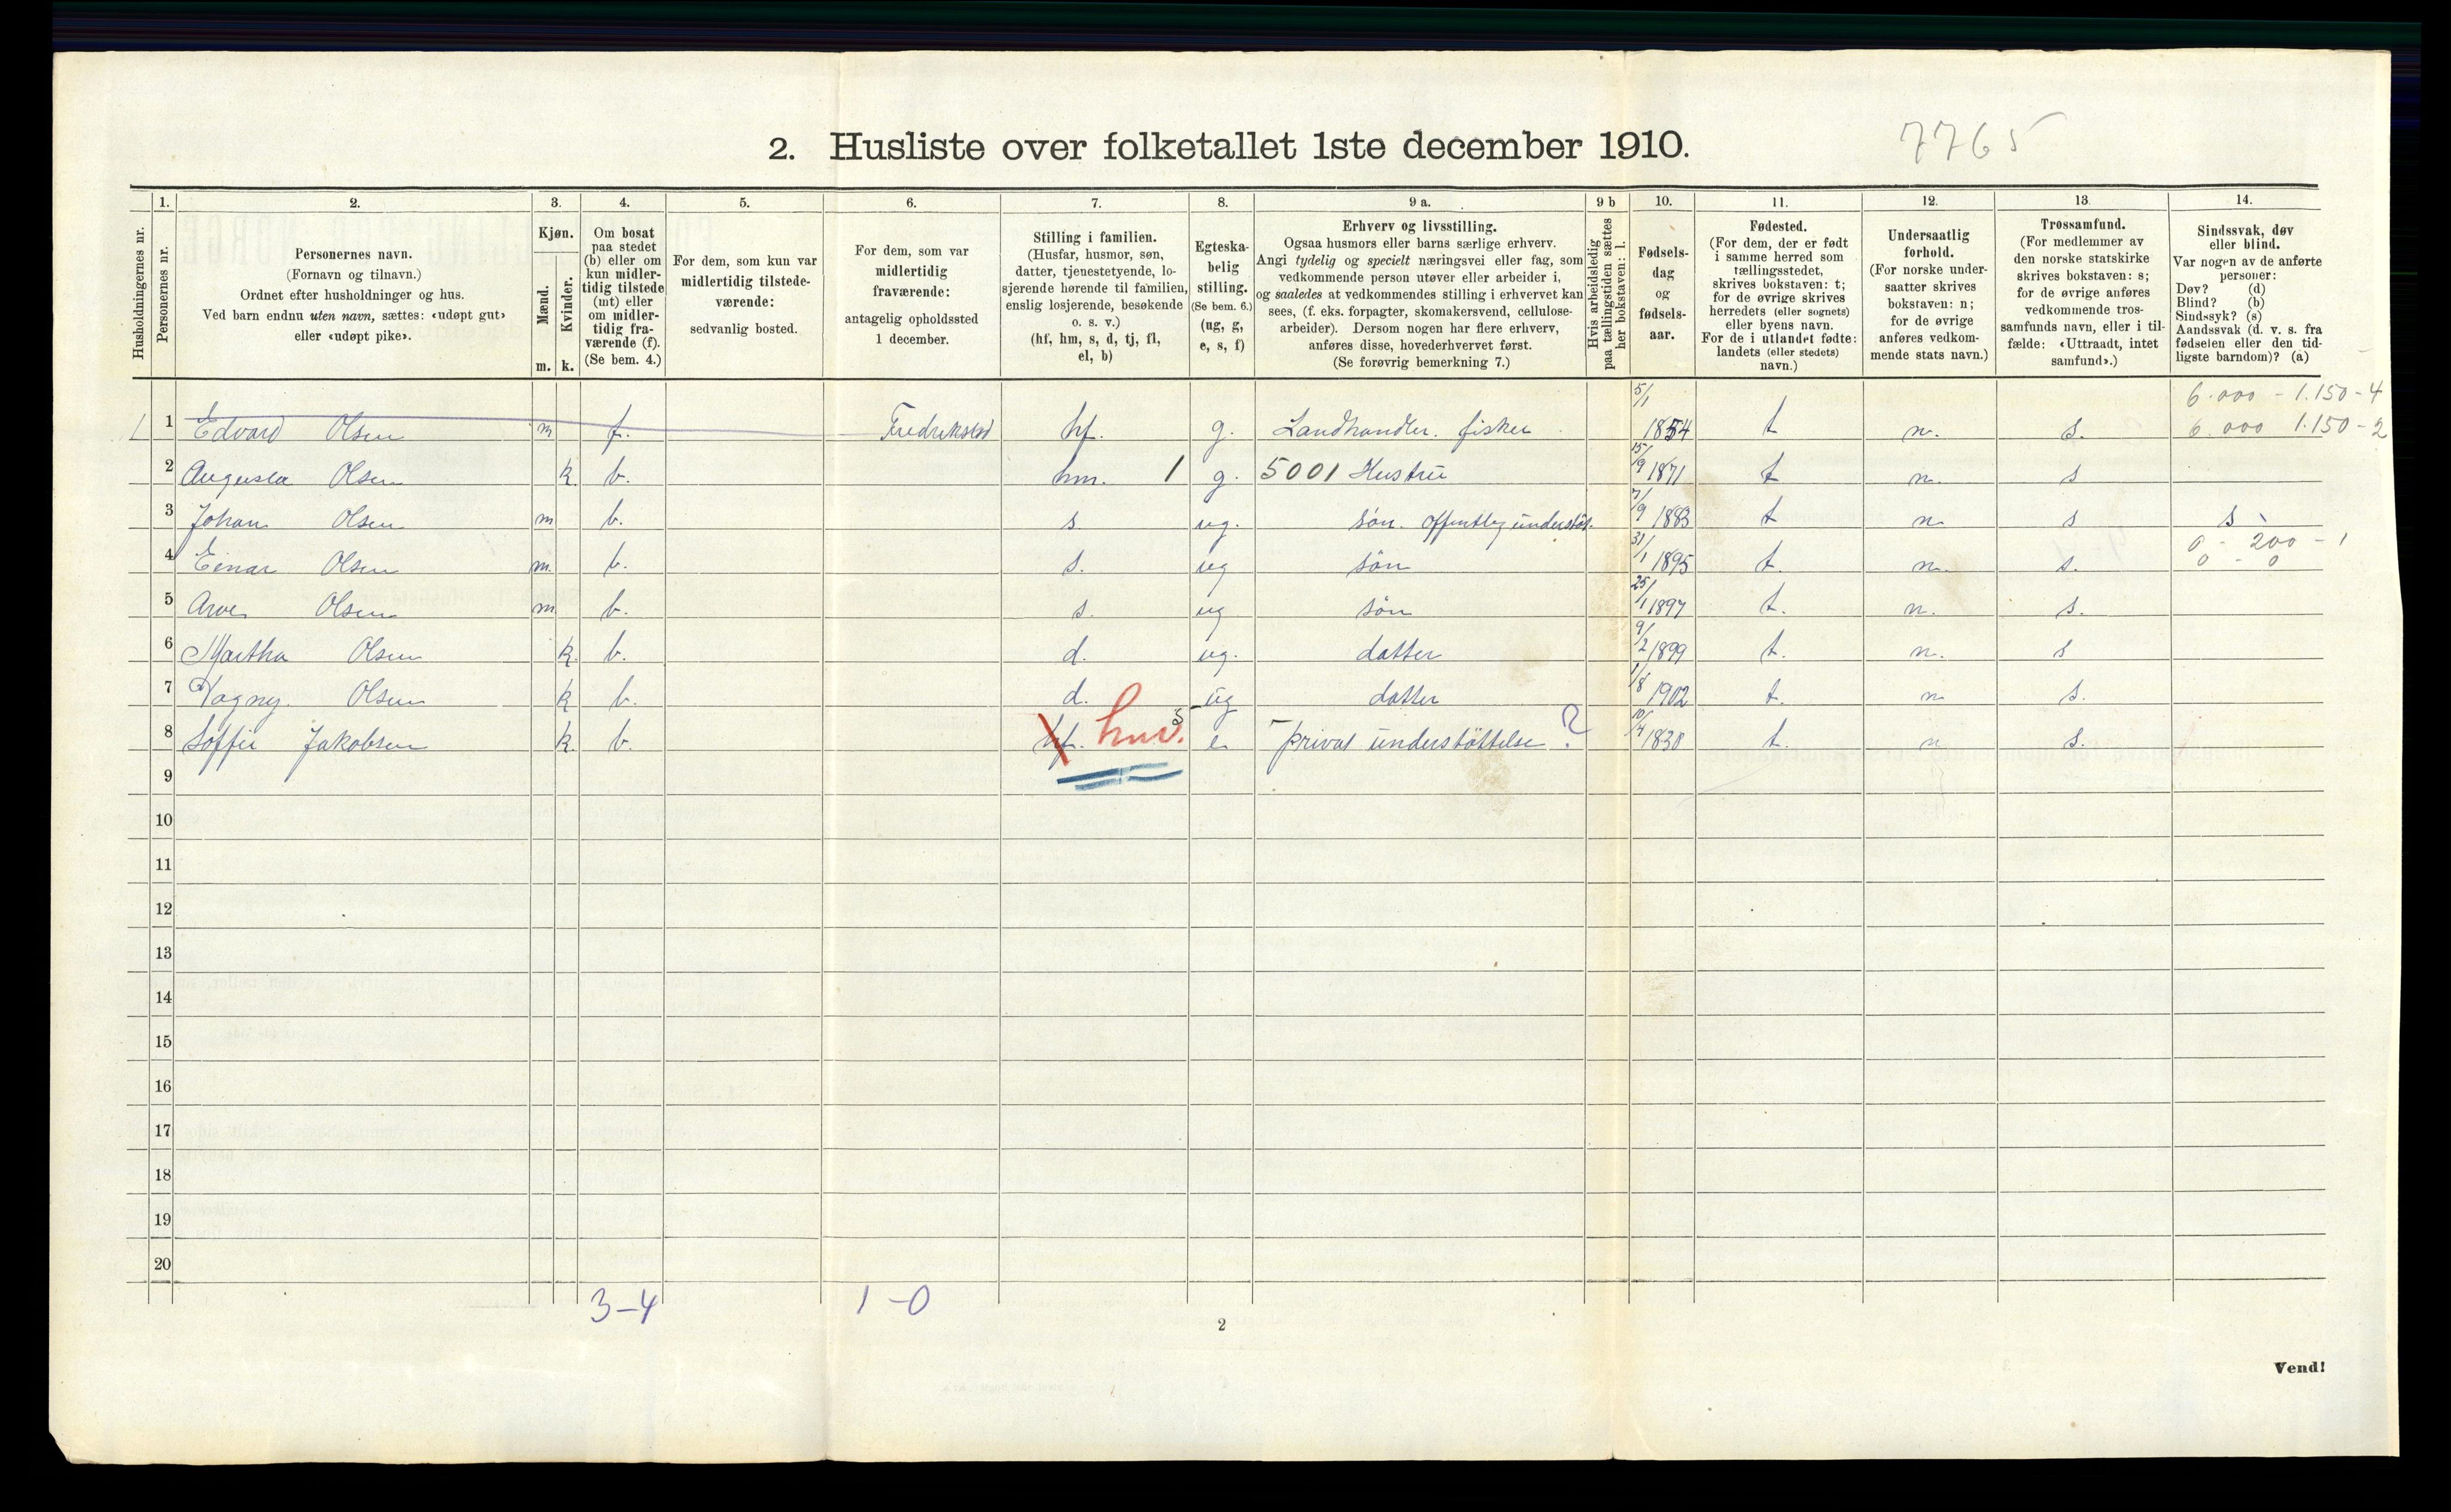 2. Husliste over folketallet 1ste december 1910.
7765
Husholdningernes nr.
1. Personernes nr.
2. Personernes navn. (Fornavn og tilnavn.) Ordnet efter husholdninger og hus. Ved barn endnu uten navn, sættes: «udøpt gut» eller «udøpt pike».
3. Kjøn. Mænd. m. Kvinder. k.
4. Om bosat paa stedet (b) eller om kun midlertidig tilstede (mt) eller om midlertidig fraværende (f). (Se bem. 4.)
5. For dem, som kun var midlertidig tilstedeværende: sedvanlig bosted.
6. For dem, som var midlertidig fraværende: antagelig opholdssted 1 december.
7. Stilling i familien. (Husfar, husmor, søn, datter, tjenestetyende, losjerende hørende til familien, enslig losjerende, besøkende o. s. v.) (hf, hm, s, d, tj, fl, el, b)
8. Egteskabelig stilling. (Se bem. 6.) (ug, g, e, s, f)
9 a. Erhverv og livsstilling. Ogsaa husmors eller barns særlige erhverv. Angi tydelig og specielt næringsvei eller fag, som vedkommende person utøver eller arbeider i, og saaledes at vedkommendes stilling i erhvervet kan sees, (f. eks. forpagter, skomakersvend, cellulosearbeider). Dersom nogen har flere erhverv, anføres disse, hovederhvervet først. (Se forøvrig bemerkning 7.)
9 b Hvis arbeidsledig paa tællingstiden sættes her bokstaven: l.
10. Fødselsdag og fødselsaar.
11. Fødested. (For dem, der er født i samme herred som tællingsstedet, skrives bokstaven: t; for de øvrige skrives herredets (eller sognets) eller byens navn. For de i utlandet fødte: landets (eller stedets) navn.)
12. Undersaatlig forhold. (For norske undersaatter skrives bokstaven: n; for de øvrige anføres vedkommende stats navn.)
13. Trossamfund. (For medlemmer av den norske statskirke skrives bokstaven: s; for de øvrige anføres vedkommende trossamfunds navn, eller i tilfælde: «Uttraadt, intet samfund».)
14. Sindssvak, døv eller blind. Var nogen av de anførte personer: Døv? (d) Blind? (b) Sindssyk? (s) Aandssvak (d. v. s. fra fødselen eller den tidligste barndom)? (a)
6.000 - 1.150 - 4
1 1 Edvard Olsen m f. Fredrikstad hf. g. Landhandler. fisker 5/1 1854 t n. s. 6.000 1.150 - 2
2 Augusta Olsen k. b. hm. 1 g. 5001 Hustru 15/9 1871 t n. s
3 Johan Olsen m b. s. ug. søn. offentlig understøt. 7/9 1883 t n s s
0 - 200 - 1
4 Einar Olsen m. b. s. ug søn 31/1 1895 t. n. s. 0 - 0
5 Arve Olsen m b. s. ug søn 25/1 1897 t. n. s.
6 Martha Olsen k. b. d. ug. datter 9/2 1899 t. n. s
7 Dagny Olsen k b. d. ug datter 1/8 1902 t. n s.
8 Soffie Jakobsen k. b. hf. hus. e. privat understøttelse ? 10/4 1830 t. n s.
9
10
11
12
13
14
15
16
17
18
19
20
3-4 1-0
2
Vend!